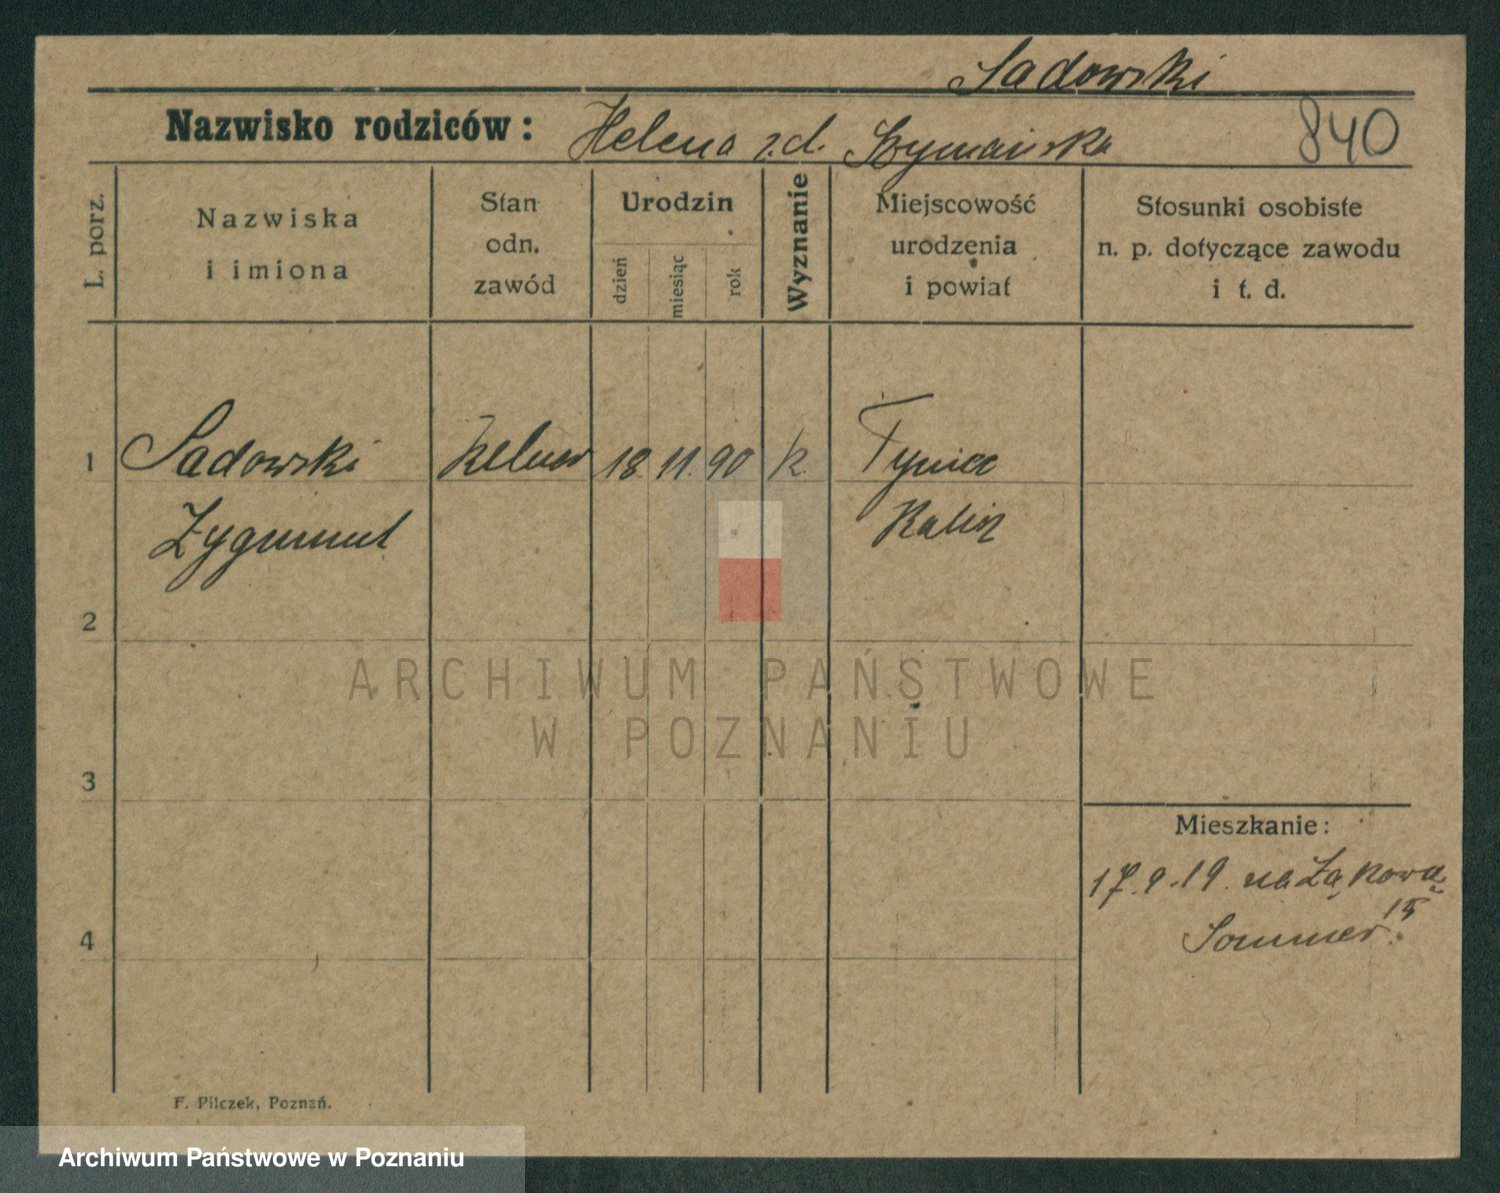 Sadowski
Nazwisko rodziców: Helena z.d. Szymańska 840
L. porz.
Nazwiska
i imiona
Stan
odn.
zawód
Urodzin
dzień
miesiąc
rok
Wyznanie
Miejscowość
urodzenia
i powiat
Stosunki osobiste
n. p. dotyczące zawodu
i t. d.
1 Sadowski kelner 18. 11. 90 k Tyniec
Zygmunt Kalisz
2
3
4
Mieszkanie:
17.9.19. na Łąkową
15
Sommer.
F. Pilczek, Poznań.
ARCHIWUM PAŃSTWOWE
W POZNANIU
Archiwum Państwowe w Poznaniu